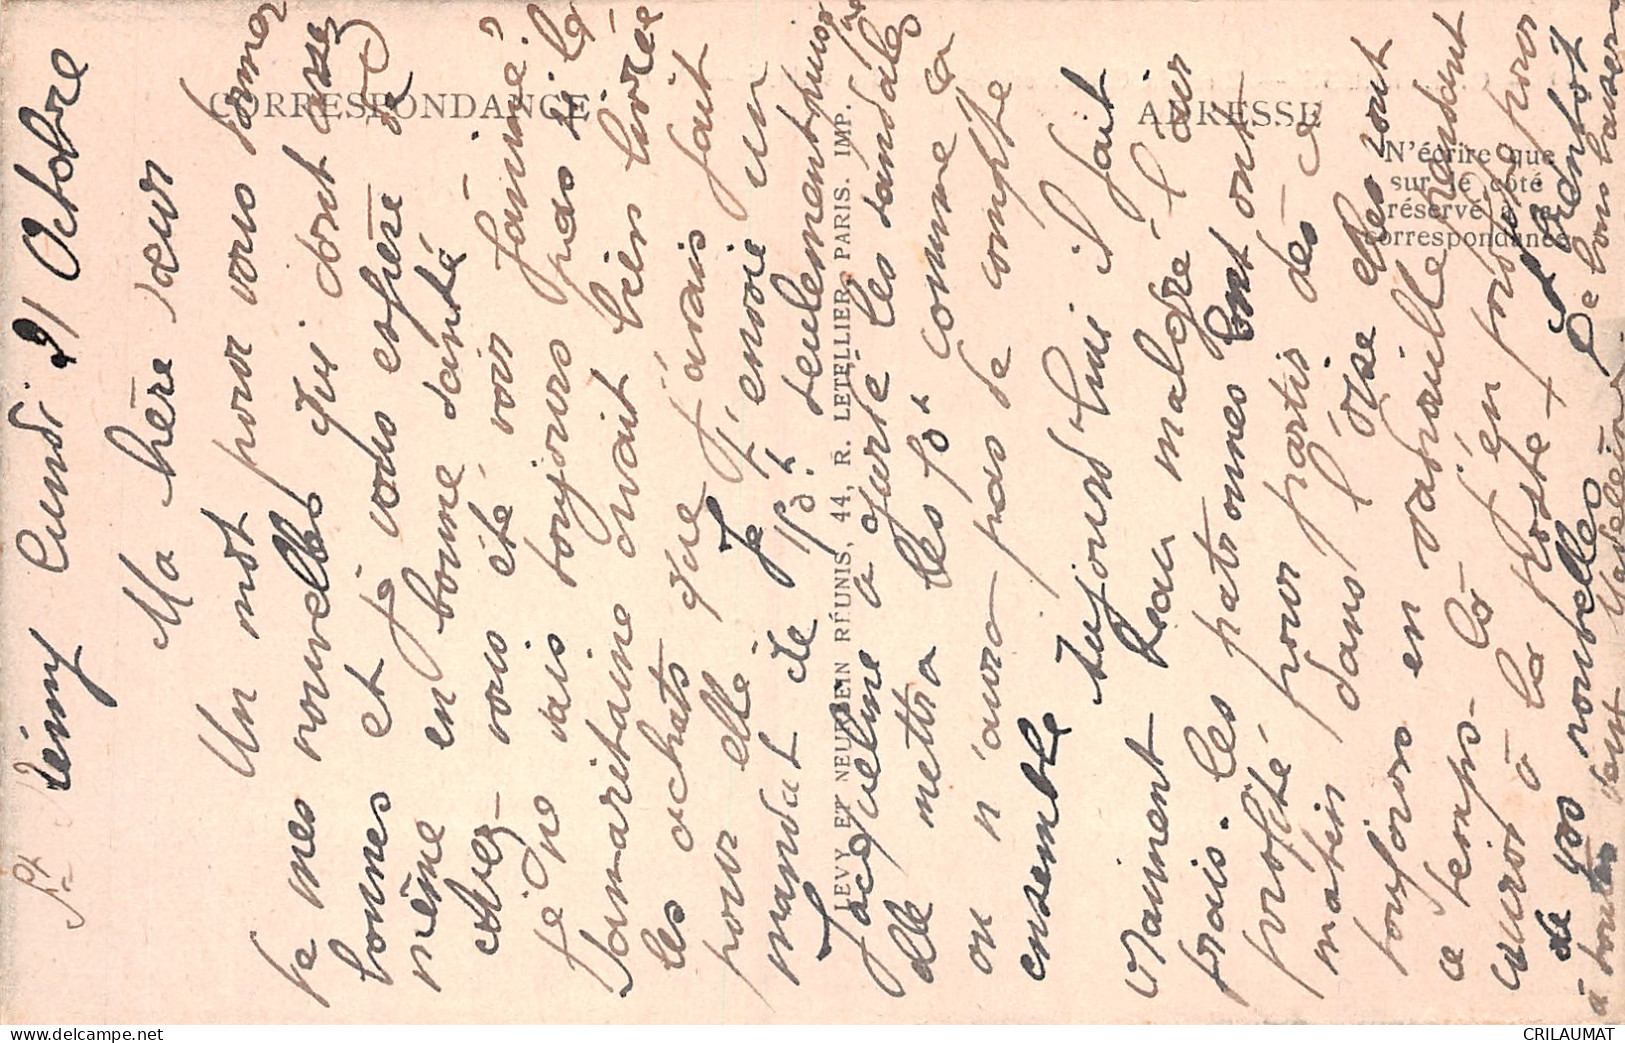 St Rémy Lundi 21 Octobre
Ma chère sœur
Un mot pour vous donner
de mes nouvelles qui sont assez
bonnes et je vous espère de
même en bonne santé
avez-vous été voir Janine?
je ne sais toujours pas si la
Samaritaine avait bien livré
les achats que j'avais fait
pour elle. Je t'envoie un
mandat de 150f seulement puisque
Jacqueline a gardé les sandales
elle mettra les 50f comme ça
on n'aura pas de compte
ensemble Aujourd'hui il fait
vraiment beau malgré l'air
frais. Les patronnes sont ont
profité pour partir dès ce
matin dans l'Oise elles sont
toujours en vadrouille pendant
ce temps-là j'en profite pour
courir à la poste. A bientôt
de vos nouvelles De bons baisers
à toutes
CORRESPONDANCE
ADRESSE
N'écrire que
sur le côté
réservé à la
correspondance
LEVY ET NEURDEIN RÉUNIS, 44, R. LETELLIER, PARIS. IMP.
CRILAUMAT